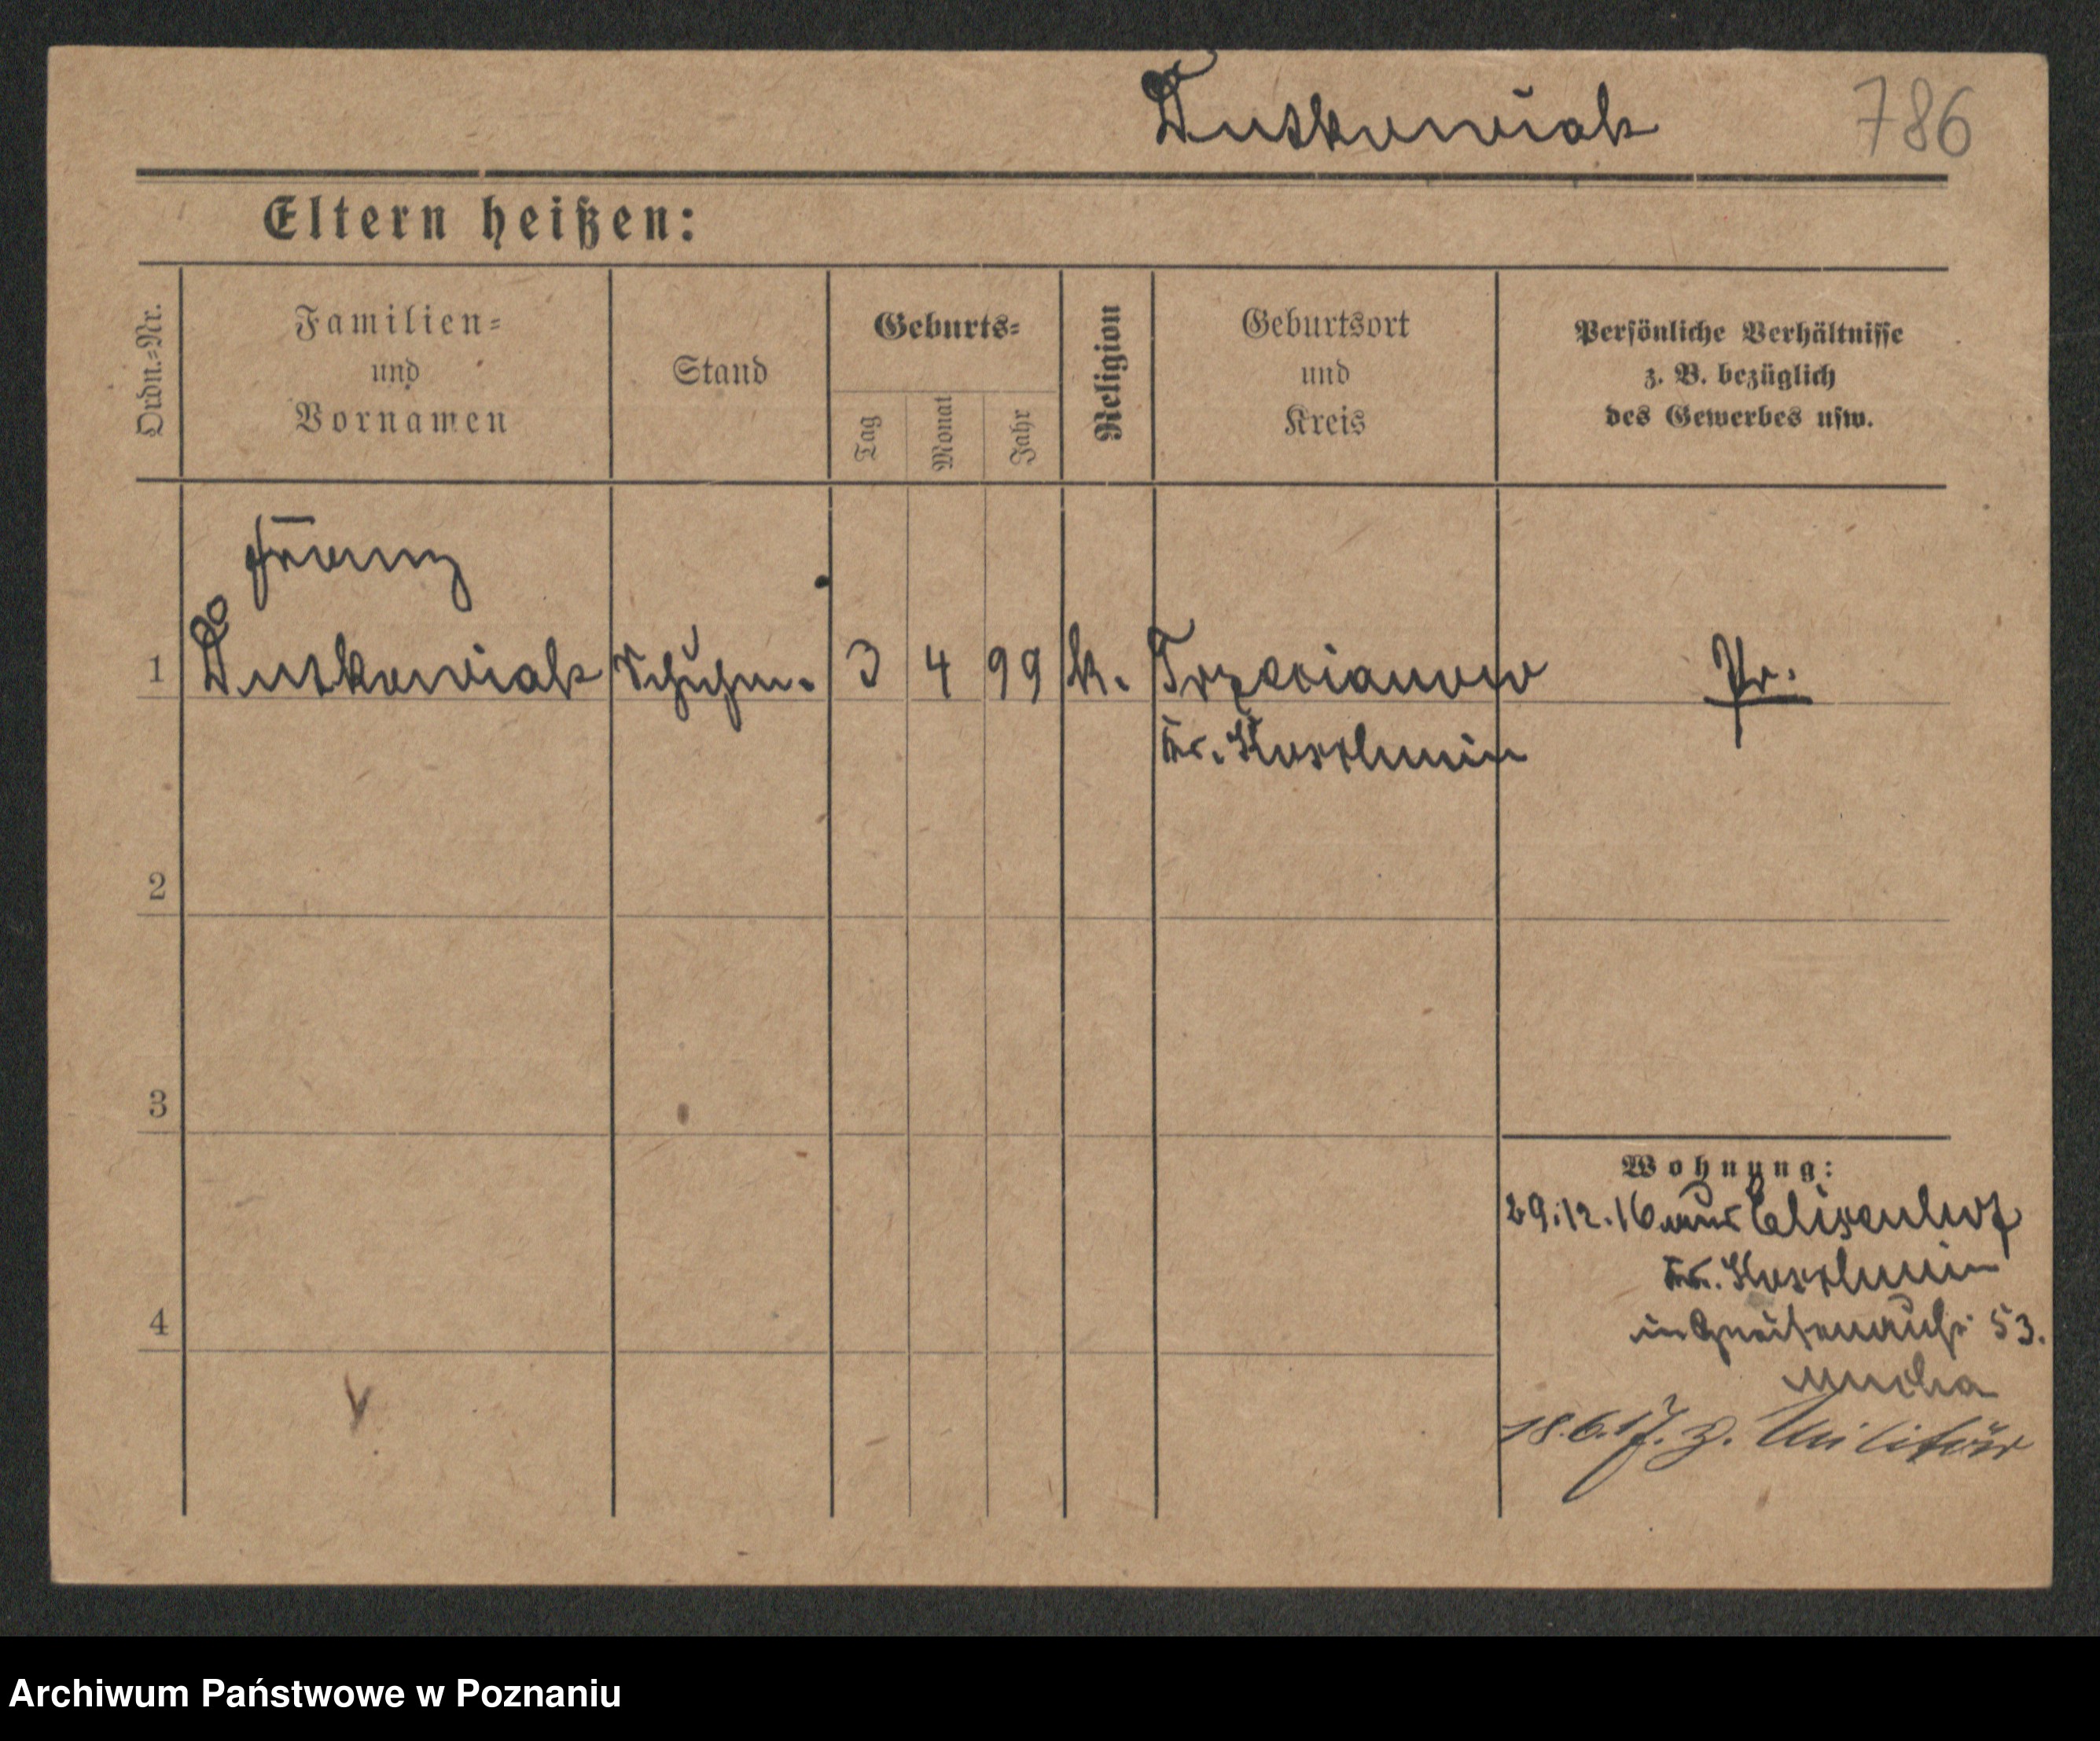 Dutkowiak 786
Eltern heißen:
Ordn.=Nr.
Familien=
und
Vornamen
Stand
Geburts=
Tag
Monat
Jahr
Religion
Geburtsort
und
Kreis
Persönliche Verhältnisse
z. B. bezüglich
des Gewerbes usw.
Franz
1 Dutkowiak Schuhm. 3 4 99 k. Trzecianow Pr.
Kr. Koschmin
2
3
Wohnung:
29.12.16 aus Elisenhof
Kr. Koschmin
4
in Gneisenaustr. 53.
Mucha
18.6.17. z. Militär
Archiwum Państwowe w Poznaniu